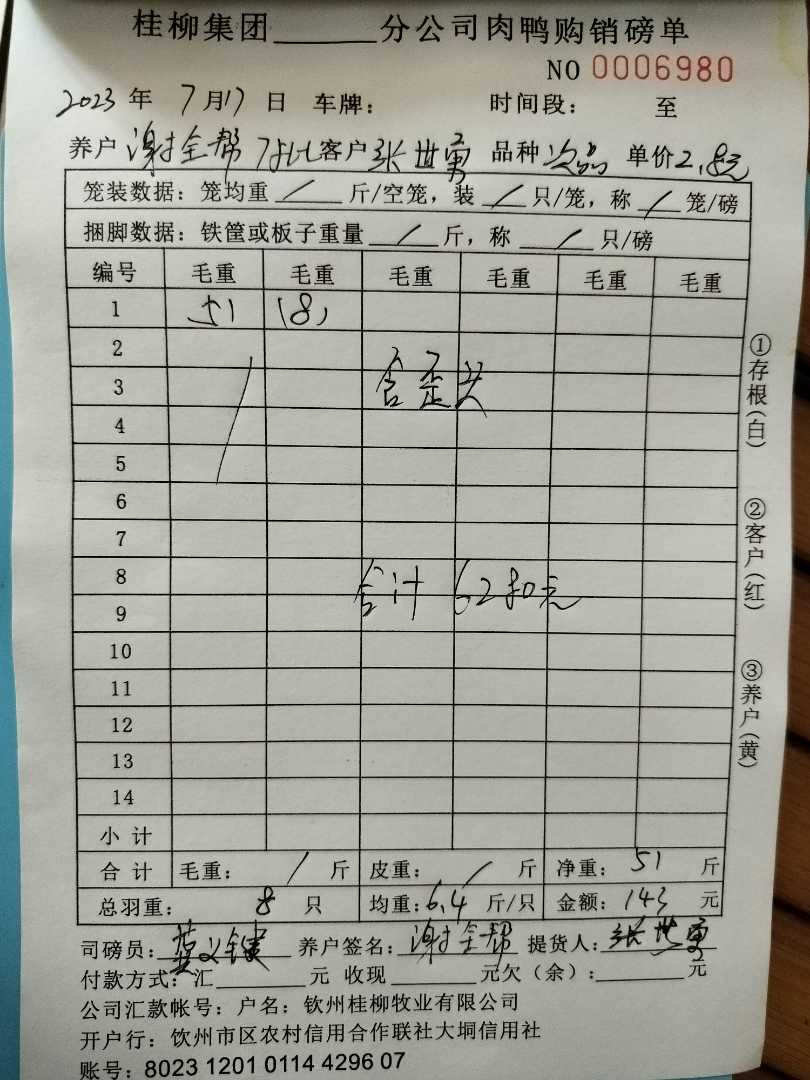 桂柳集团______分公司肉鸭购销磅单
NO 0006980
2023 年 7 月 17 日 车牌: 时间段: 至
养户 谢全帮 客户 张世勇 品种 次品 单价 2.8元
笼装数据: 笼均重 / 斤/空笼, 装 / 只/笼, 称 / 笼/磅
捆脚数据: 铁筐或板子重量 / 斤, 称 / 只/磅
编号 毛重 毛重 毛重 毛重 毛重 毛重
1 51 (8)
2
3 含歪头
4
5
6
7
8 合计 6280元
9
10
11
12
13
14
小计
合计 毛重: / 斤 皮重: / 斤 净重: 51 斤
总羽重: 8 只 均重: 6.4 斤/只 金额: 143 元
司磅员: 养户签名: 谢全帮 提货人: 张世勇
付款方式: 汇______元 收现______元欠(余):______元
公司汇款帐号: 户名: 钦州桂柳牧业有限公司
开户行: 饮州市区农村信用合作联社大垌信用社
账号: 8023 1201 0114 4296 07
①存根(白)
②客户(红)
③养户(黄)